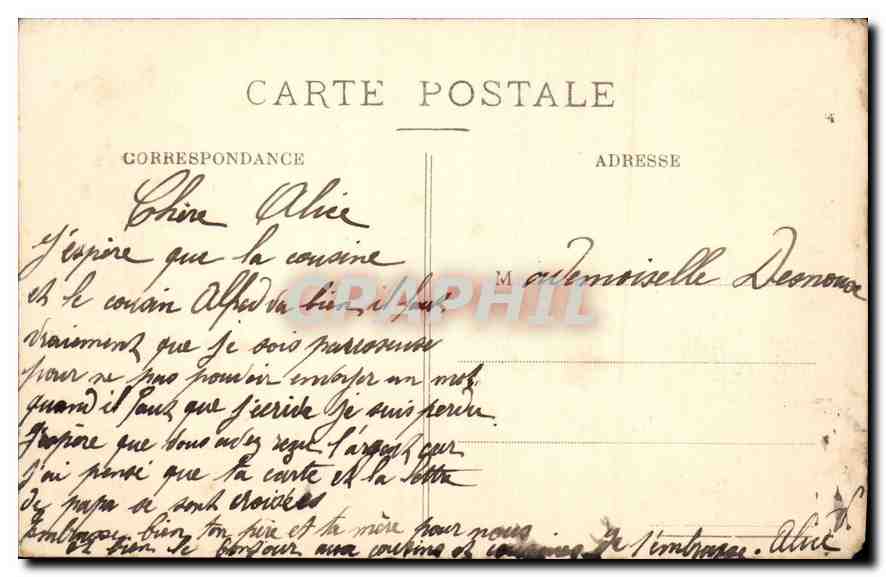 CARTE POSTALE
CORRESPONDANCE
ADRESSE
Chère Alice
J'espère que la cousine
et le cousin Alfred va bien, il faut
vraiement que je sois paresseuse
pour ne pas pouvoir envoyer un mot
quand il faut que j'écrive je suis perdu
J'espère que vous avez reçu l'argent car
j'ai pensé que ta carte et la lettre
de papa se sont croisées
Embrasse bien ton père et ta mère pour nous
et bien le bonjour aux cousins et cousines Je t'embrasse. Alice
Mademoiselle Desnoux
CPAPHIL